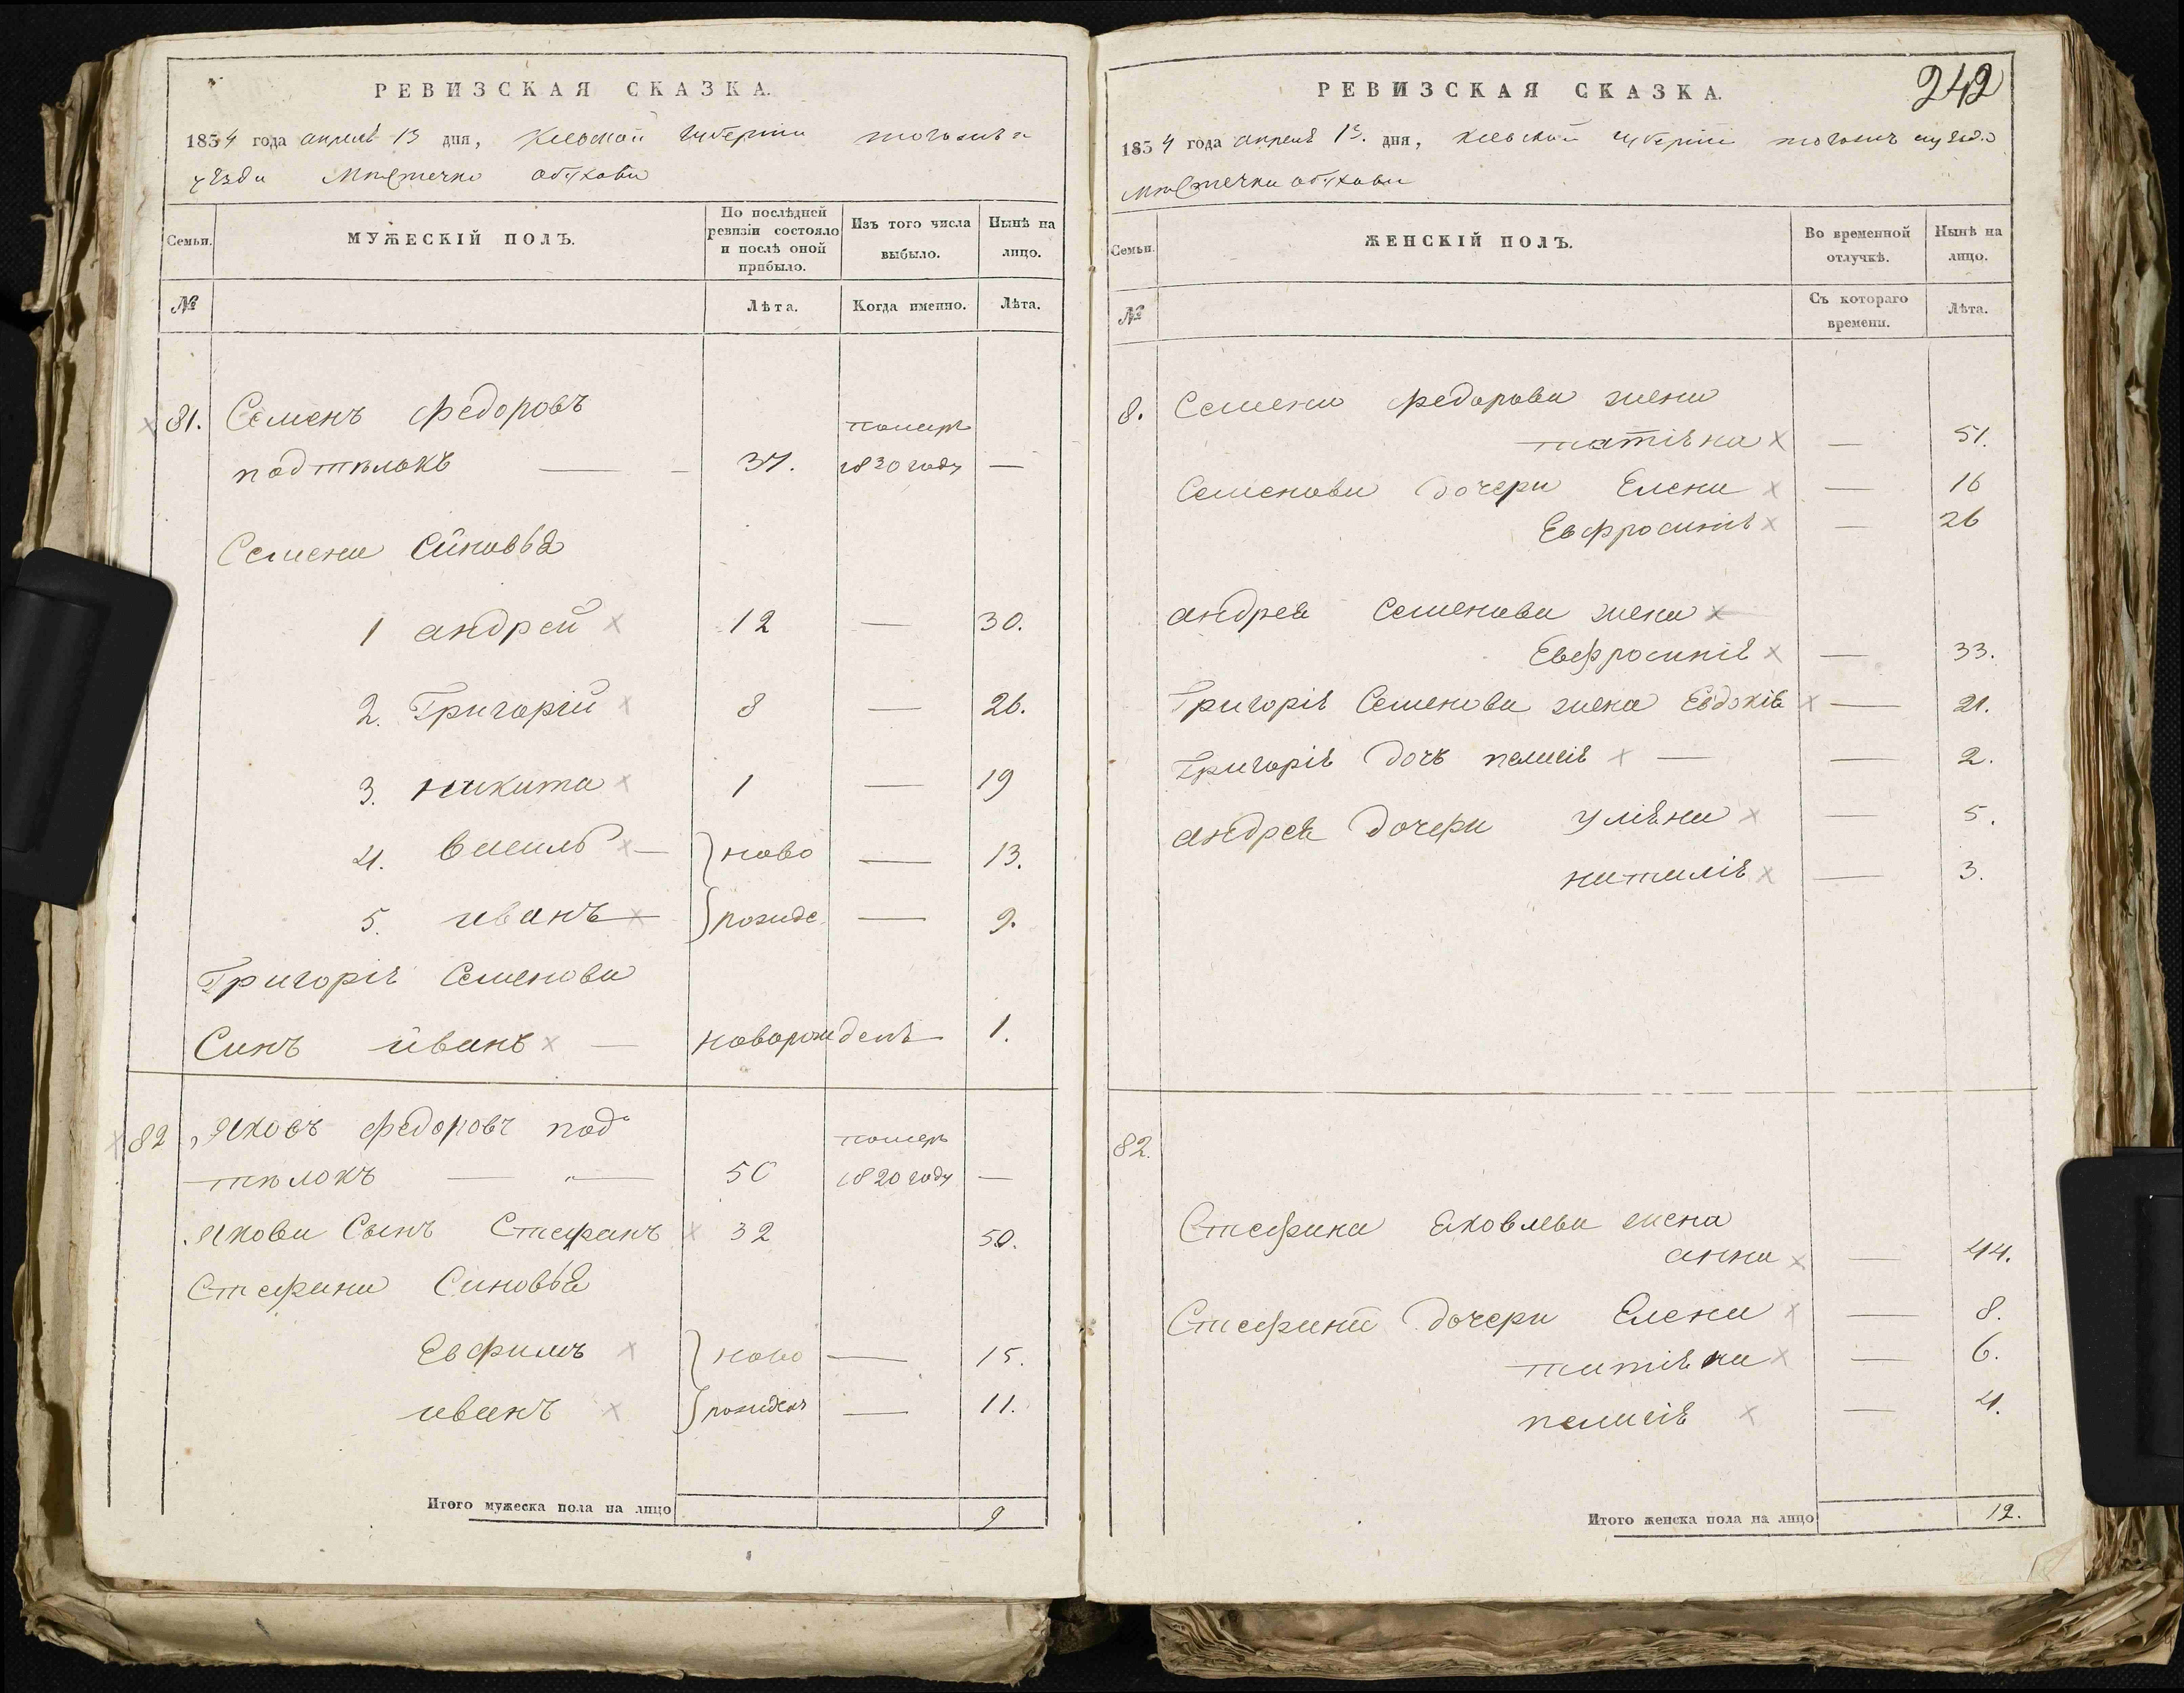 РЕВИЗСКАЯ СКАЗКА.
1834 года апреля 13 дня, Киевской губернии тогожъ
уезда Местечка обухова
Семьи.
МУЖЕСКІЙ ПОЛЪ.
По послѣдней ревизіи состояло и послѣ оной прибыло.
Изъ того числа выбыло.
Нынѣ на лицо.
№
Лѣта.
Когда именно.
Лѣта.
81. Семенъ Федоровъ
подтѣлокъ — 37. померъ 1820 году —
Семена Синовья
1 андрей 12 — 30.
2. Григорій 8 — 26.
3. никита 1 — 19
4. василь — ново — 13.
5. иванъ — рожде — 9.
Григорія Семенова
Синъ иванъ — новорожденъ 1.
82 Яковъ Федоровъ под
тѣлокъ — 50 померъ 1820 году —
Якова Сынъ Стефанъ 32 50.
Стефана Синовья
Евфимъ ново — 15.
иванъ рожденъ — 11.
Итого мужеска пола на лицо 9
242
РЕВИЗСКАЯ СКАЗКА.
1834 года апреля 13. дня, киевской губерніи тогожъ уезда
Местечка обухова
Семьи.
ЖЕНСКІЙ ПОЛЪ.
Во временной отлучкѣ.
Нынѣ на лицо.
№
Съ котораго времени.
Лѣта.
8. Семена Федорова жена
татіяна — 51.
Семенова дочери Елена — 16
Евфросинія — 26
андрея Семенова жена
Евфросинія — 33.
Григорія Семенова жена Евдокія — 21.
Григорія дочь пелагія — — 2.
андрея дочери уліяна — 5.
наталія — 3.
82.
Стефана Яковлева жена
анна — 44.
Стефана дочери Елена — 8.
татіяна — 6.
пелагія — 4.
Итого женска пола на лицо 12.